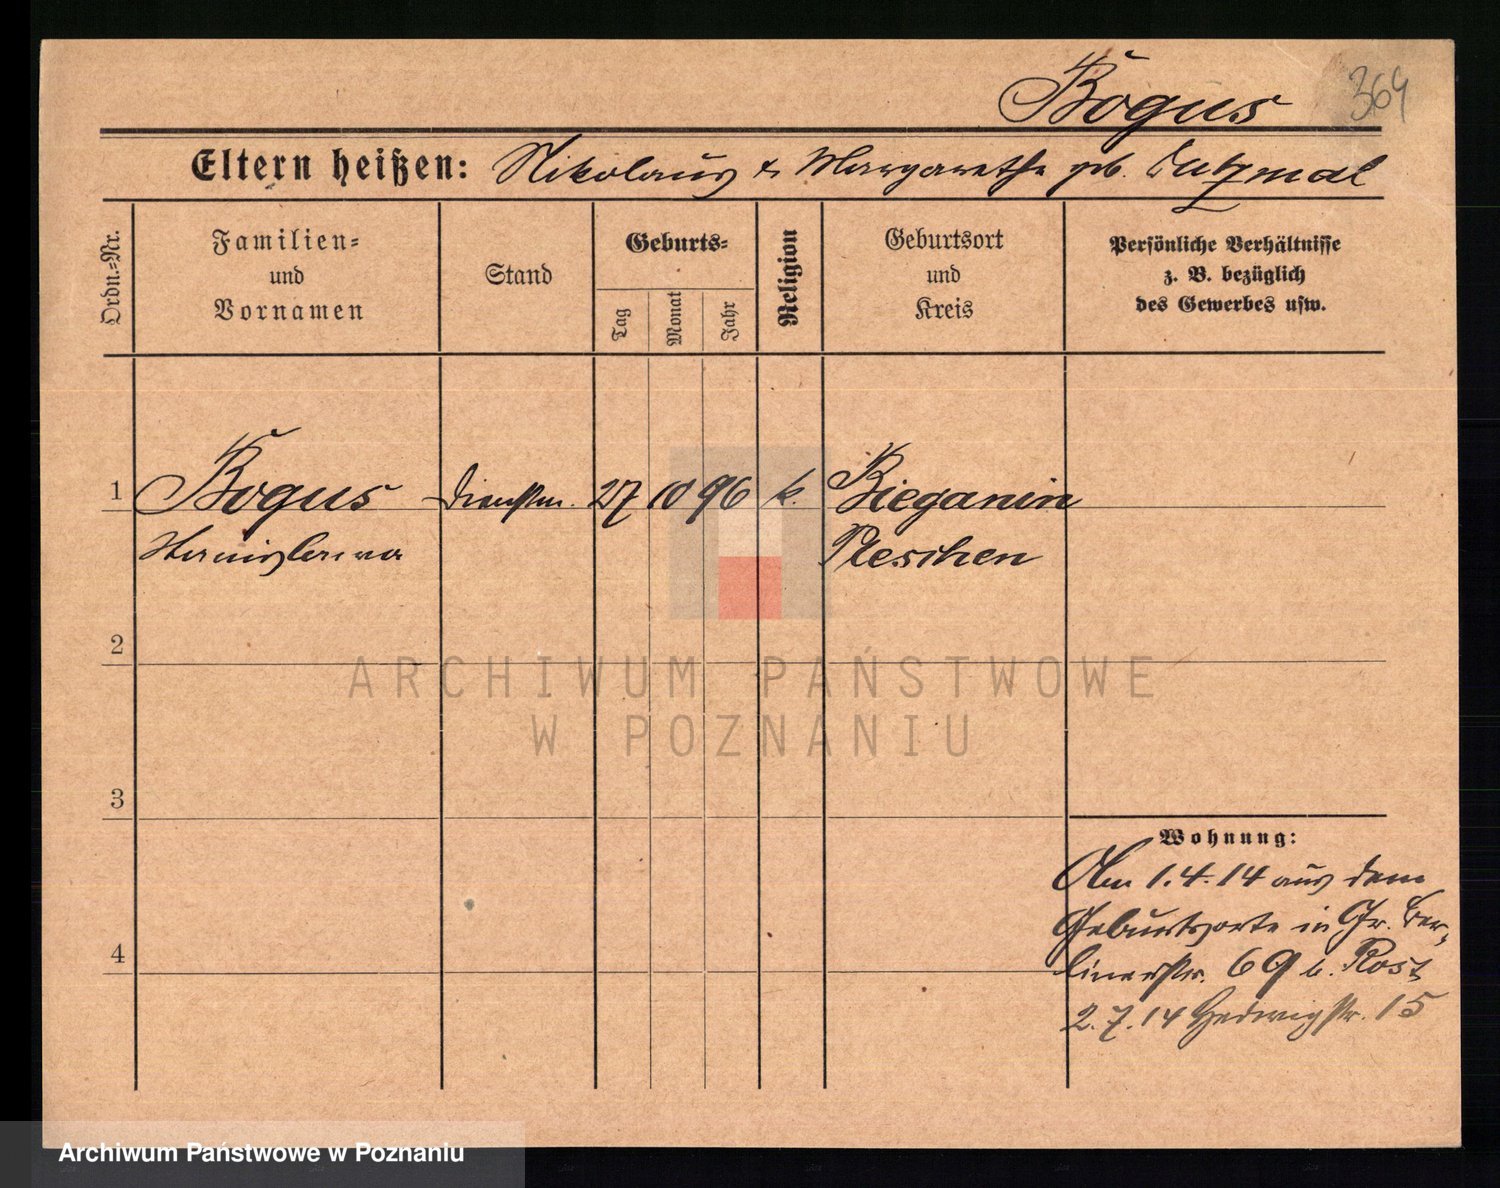 Bogus 364
Eltern heißen: Nikolaus & Margarethe geb.
Ordn.=Nr.
Familien=
und
Vornamen
Stand
Geburts=
Tag
Monat
Jahr
Religion
Geburtsort
und
Kreis
Persönliche Verhältnisse
z. B. bezüglich
des Gewerbes usw.
1 Bogus Dienstm. 27 10 96 k. Bieganin
Stanislawa Pleschen
2
3
4
Wohnung:
Am 1.4.14 aus dem
Geburtsorte in Gr. Ber-
linerstr. 69 b. Rost
2.7.14 Hedwigstr. 15
ARCHIWUM PAŃSTWOWE
W POZNANIU
Archiwum Państwowe w Poznaniu